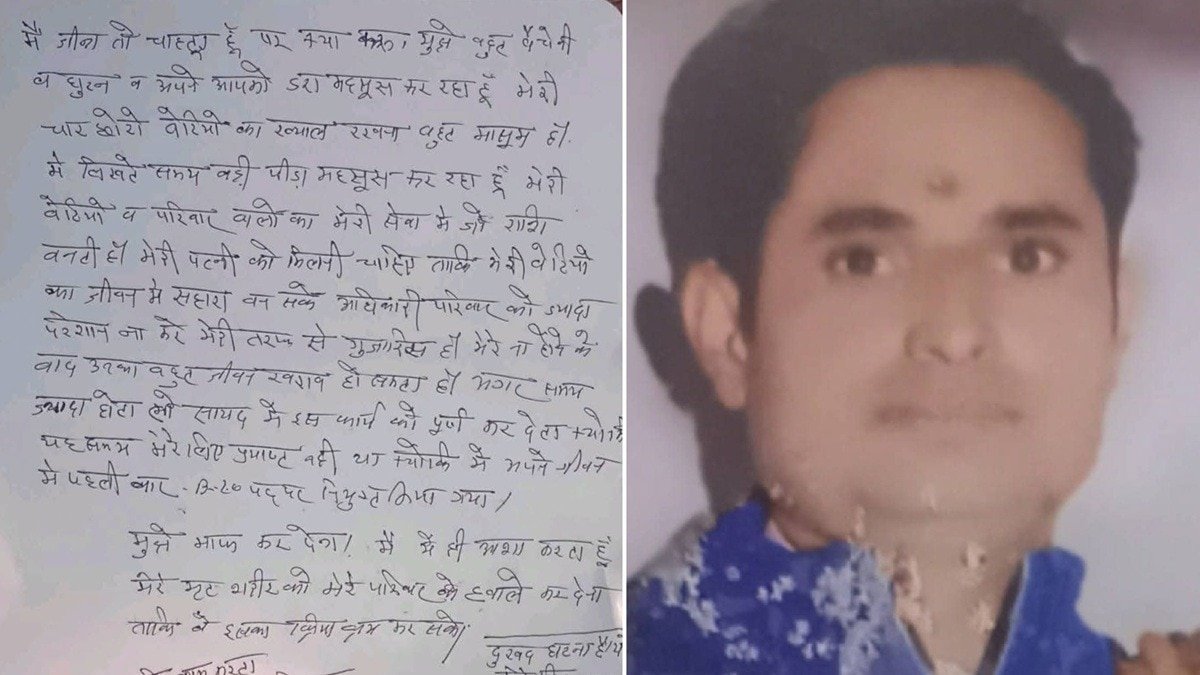 मै जीना तो चाहता हूँ पर क्या करू। मुझे बहुत बैचेनी
व घुटन व अपने आपको डरा महसूस कर रहा हूँ मेरी
चार छोटी बेटियो का ख्याल रखना बहुत मासूम हॅ।
मे लिखते समय बड़ी पीड़ा महसूस कर रहा हूँ मेरी
बेटियो व परिवार वालो का मेरी सेवा मे जो राशि
बनती हॅ मेरी पत्नी को मिलनी चाहिए ताकि मेरी बेटियो
का जीवन मे सहारा बन सके अधिकारी परिवार को ज्यादा
परेशान ना करे मेरी तरफ से गुजारिस हॅ मेरे ना होने के
बाद उनका बहुत जीवन खराब हो सकता हॅ मगर समय
ज्यादा होता तो सायद मै इस कार्य को पूर्ण कर देता क्योकि
यह समय मेरे लिए प्रयाप्ट नही था क्योकि मै अपने जीवन
मे पहली बार पद पर नियुक्त किया गया।
मुझे माफ कर देना। मै ये ही आशा करता हूँ
मेरे मृत शरीर को मेरे परिवार के हवाले कर देना
ताकि वे इसका क्रिया कर सके।
दुखद घटना है।